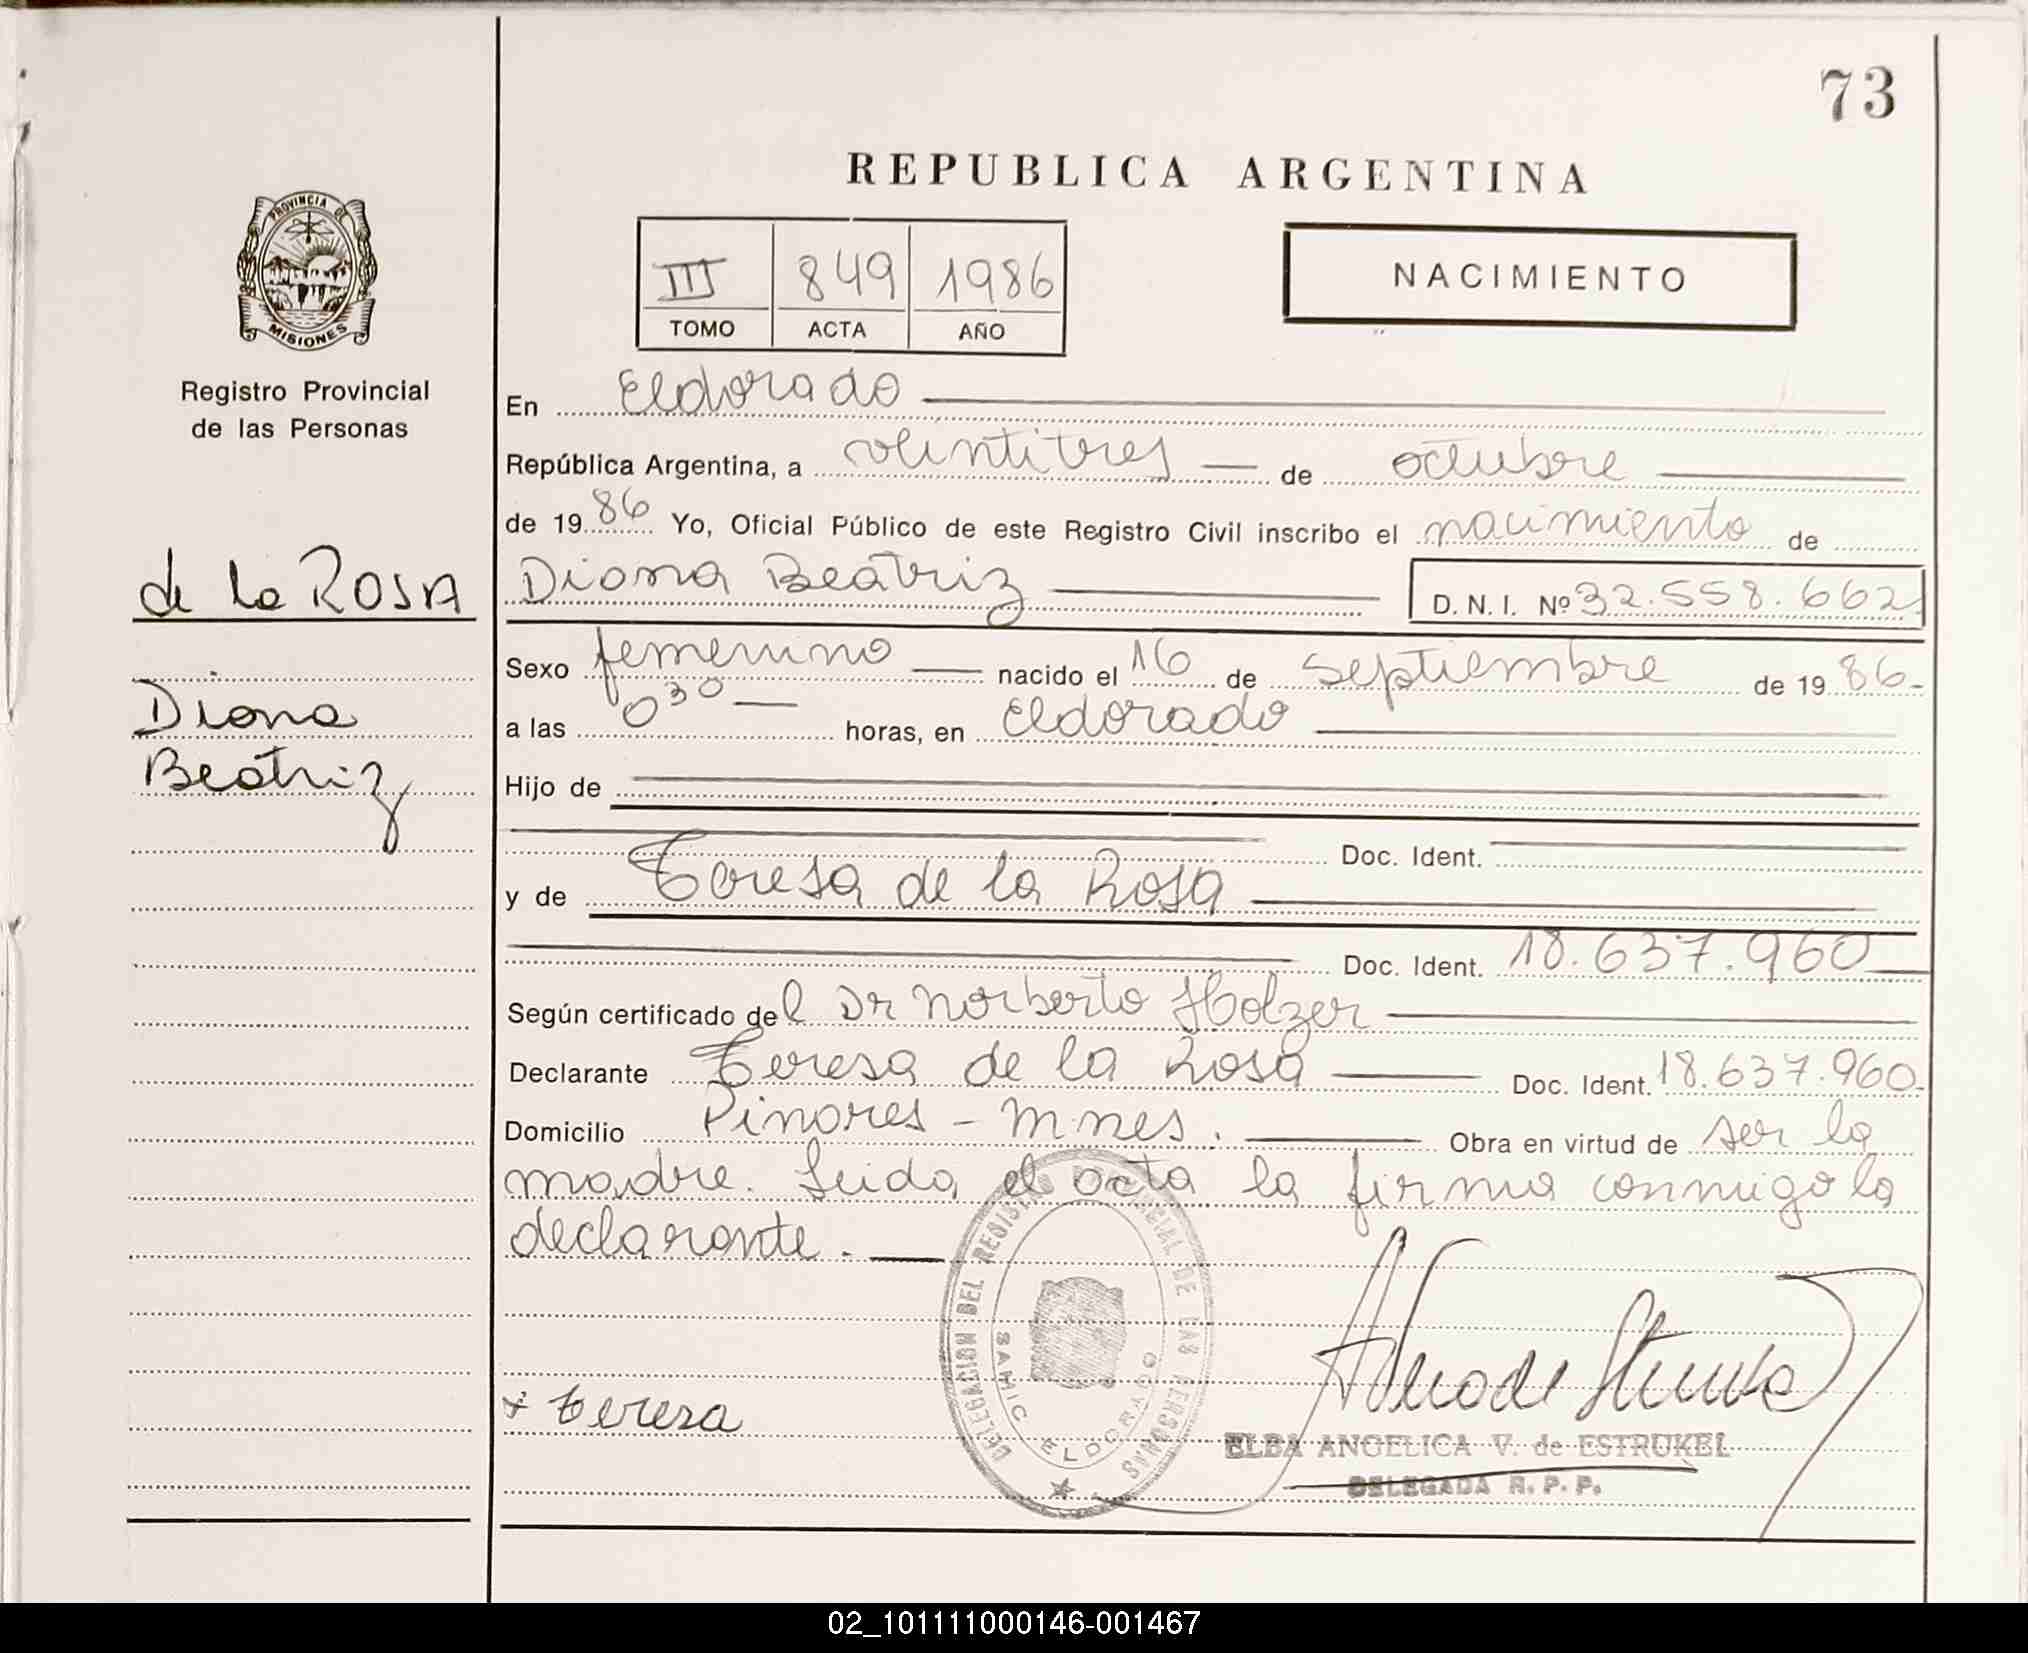 73
REPUBLICA ARGENTINA
PROVINCIA DE
MISIONES
Registro Provincial
de las Personas
III 849 1986
TOMO ACTA AÑO
NACIMIENTO
En Eldorado
República Argentina, a veintitres de octubre
de 1986 Yo, Oficial Público de este Registro Civil inscribo el nacimiento de
de la ROSA
Diana Beatriz D. N. I. Nº 32.558.662
Sexo femenino nacido el 16 de septiembre de 1986-
Diana
Beatriz
a las 030 horas, en Eldorado
Hijo de
Doc. Ident.
y de Teresa de la Rosa
Doc. Ident. 18.637.960
Según certificado del Dr Norberto Holzer
Declarante Teresa de la Rosa Doc. Ident. 18.637.960-
Domicilio Pinares - Mnes. Obra en virtud de ser la
madre. Leida el acta la firma conmigo la
declarante.
DELEGACION DEL REGISTRO PROVINCIAL DE LAS PERSONAS
SAMIC ELDORADO
x teresa
ELBA ANGELICA V. de ESTRUKEL
DELEGADA R. P. P.
02_101111000146-001467